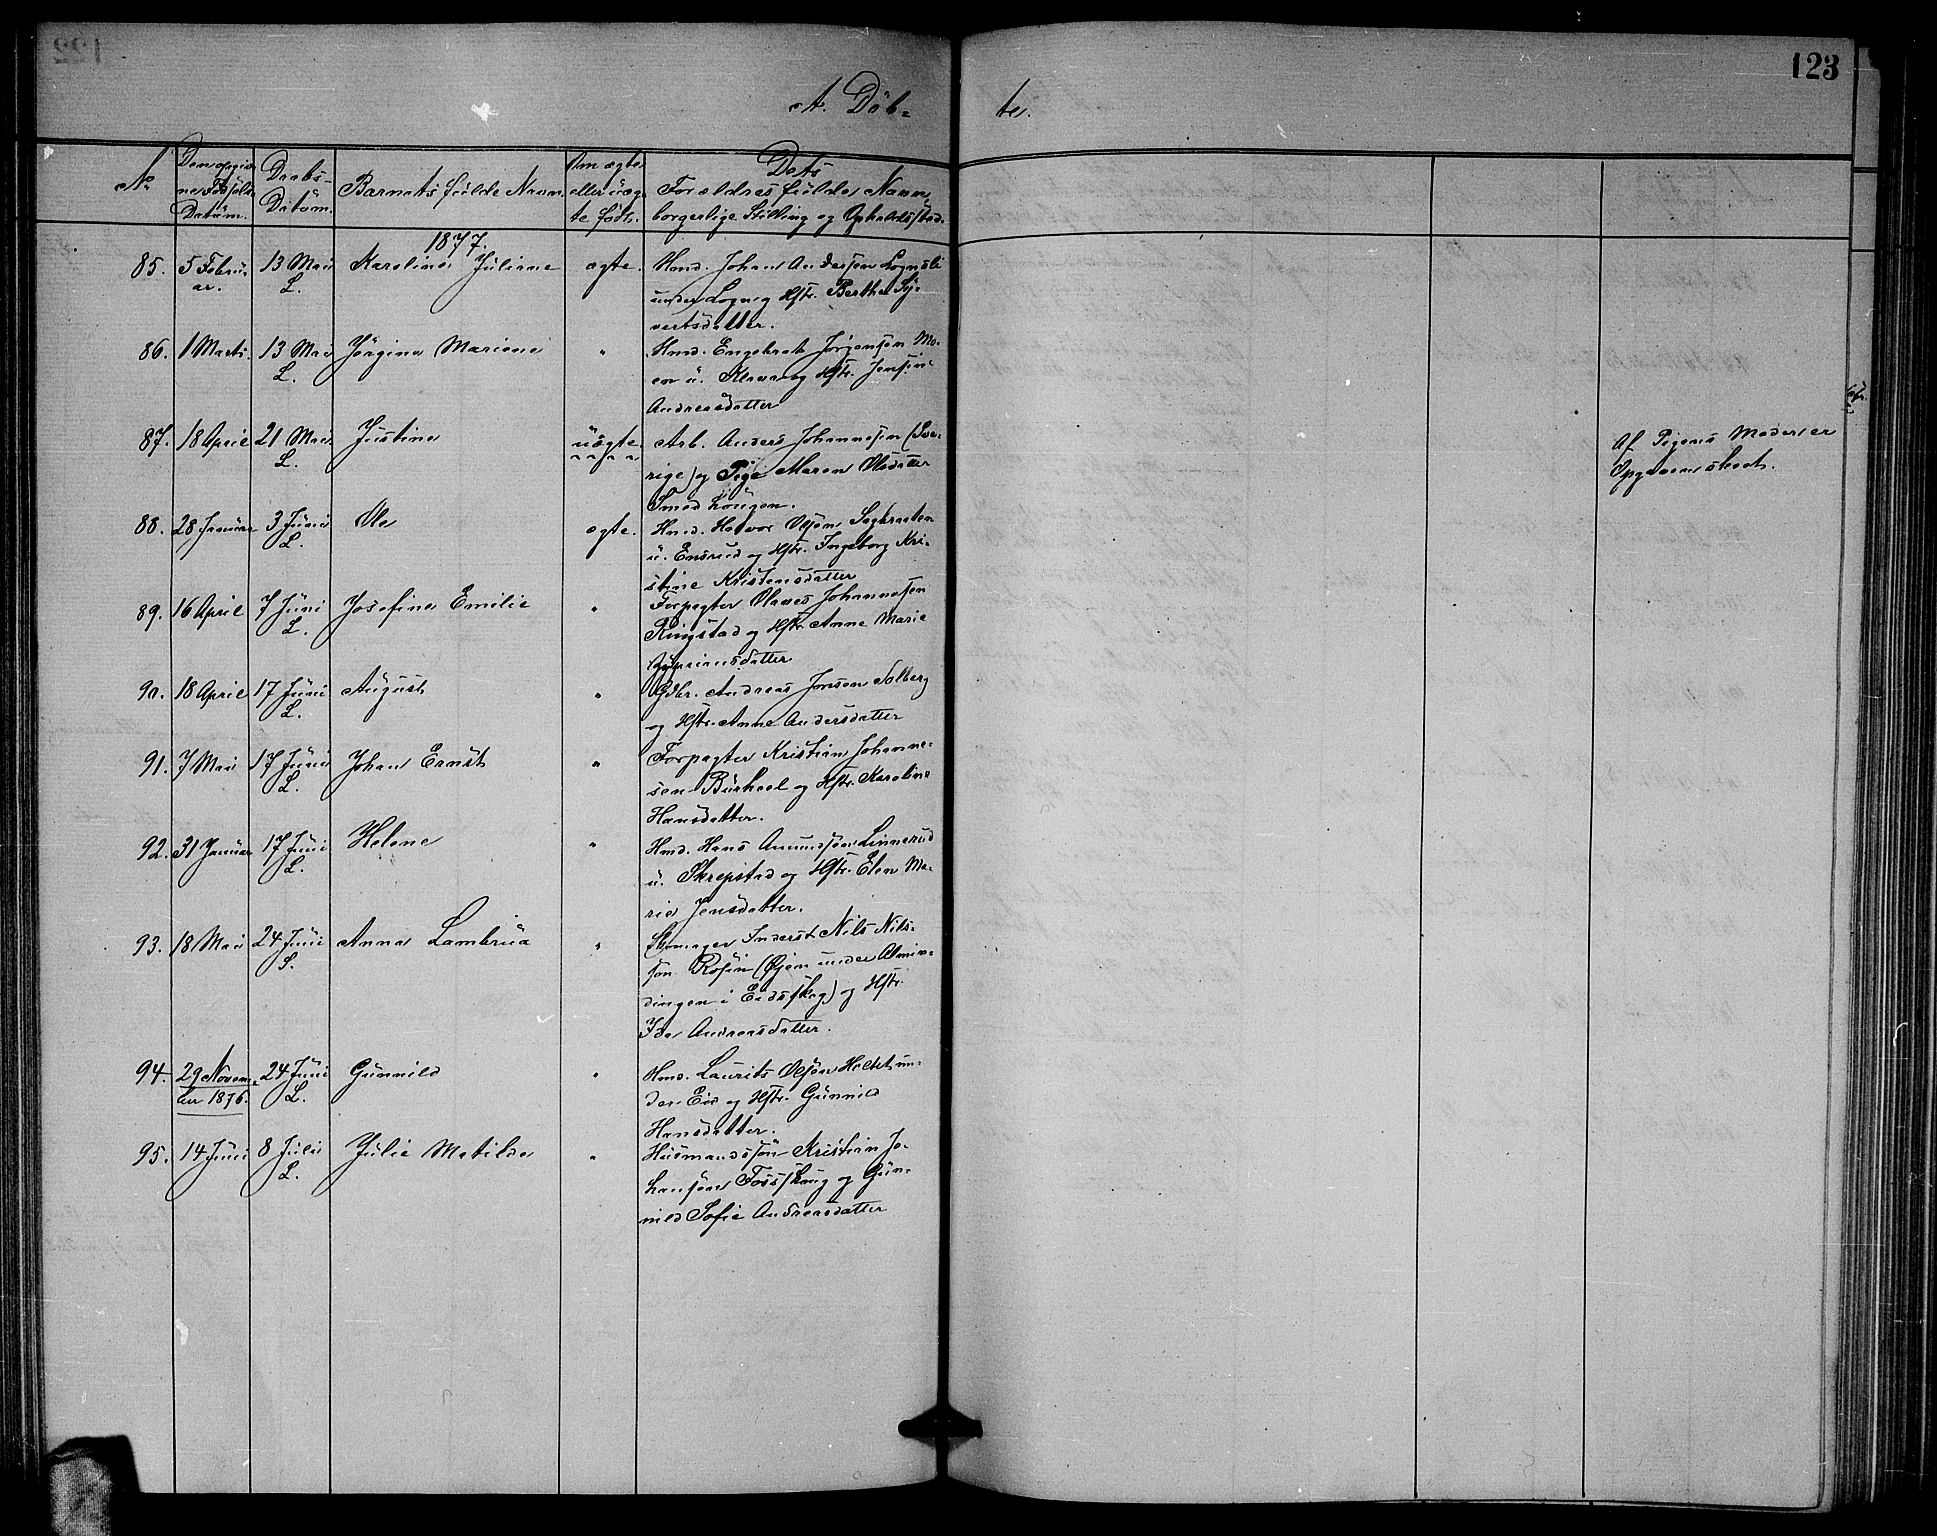 123
A. Döb-
te.
No
Den opgiv-
ne Fødsels
Datum.
Daabs-
Datum.
Barnets fulde Navn.
Om ægte
eller uæg-
te født.
Dets
Forældres fulde Navn,
borgerlige Stilling og Opholdssted.
1877.
85. 5 Febru- 13 Mai Karoline Juliane ægte. Hmd. Johan Andersen Lognsli
ar. L. under Logn og Hstr. Berthe Sy-
vertsdatter.
86. 1 Marts. 13 Mai Jörgine Mariene " Hmd. Engebret Jörgensen Mo-
L. en u. og Hstr. Jensine
Andreasdatter
87. 18 April 21 Mai Justine uægte Arb. Anders Johannesen (Sve-
L. rige) og Pige Maren Olsdatter
Smedhaugen.
Af Pigens Moder er
Opgaven skeet.
88. 28 Januar 3 Juni Ole ægte. Hmd. Halvor Olsen Sagbraaten
L. u. Ensrud og Hstr. Ingeborg Kri-
stine Kristensdatter
89. 16 April 7 Juni Josefine Emilie " Forpagter Olaves Johannesen
L. Ringstad og Hstr. Anne Marie
Zypriansdatter
90. 18 April 17 Juni August " Gdbr. Andreas Jonsen Salberg
L. og Hstr. Anne Andersdatter
91. 7 Mai 17 Juni Johan Ernst " Forpagter Kristian Johanne-
L. sen Burhool og Hstr. Karoline
Hansdatter.
92. 31 Januar 17 Juni Helene " Hmd. Hans Amundsen Linnerud
L. u. Skrepstad og Hstr. Elen Ma-
rie Jensdatter.
93. 18 Mai 24 Juni Anna Lambrüa " Skomager Inderst Nils Nils-
S. sen Rosin (Øjen under Almin-
dingen i Eidsskog) og Hstr.
Ida Andreasdatter.
94. 29 Novem- 24 Juni Gunnild " Hmd. Laurits Olsen Holtet un-
ber 1876. L. der Eid og Hstr. Gunnild
Hansdatter.
95. 14 Juni 8 Juli Julie Matilde " Husmandssøn Kristian Jo-
L. hansen Fossskaug og Gun-
nild Sofie Andreasdatter